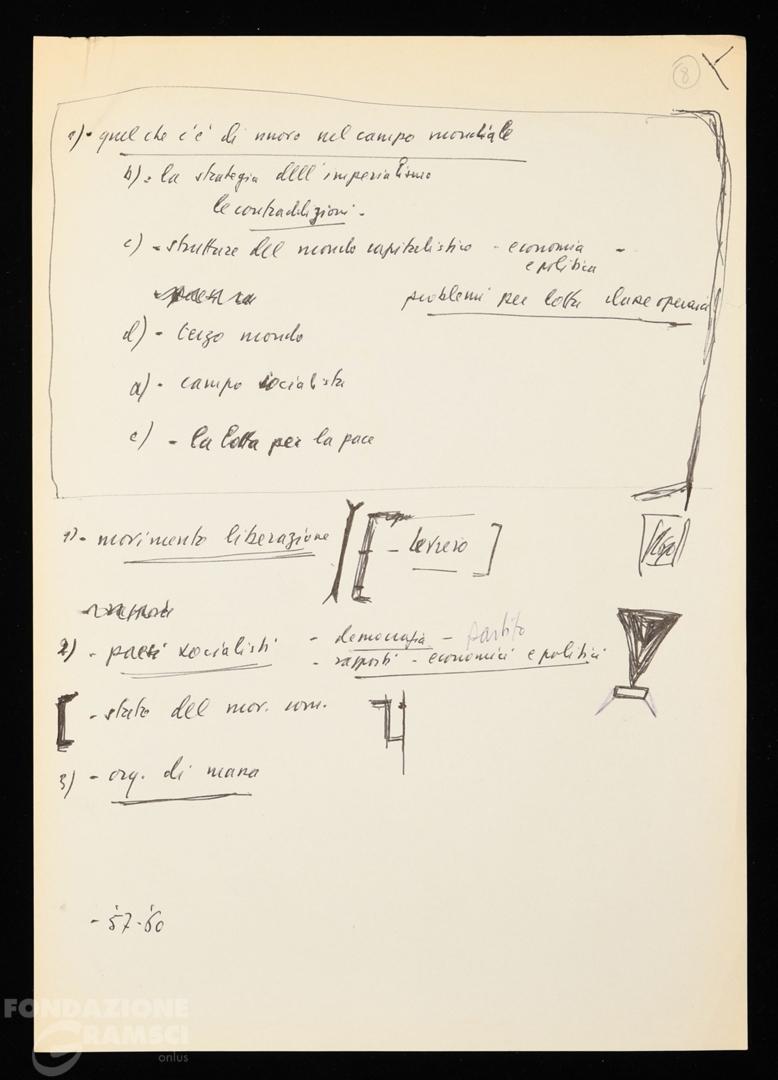 8
1)- quel che c'è di nuovo nel campo mondiale
b)- la strategia dell'imperialismo
le contraddizioni -
c) - strutture del mondo capitalistico - economia -
e politica
problemi per lotta classe operaia
d) - terzo mondo
a) - campo socialista
e) - la lotta per la pace
1)- movimento liberazione [ - ]
2) - paesi socialisti - democrazia - partito
- rapporti - economici e politici
[ - stato del mov. com. ]
3) - org. di massa
- '57-'60
FONDAZIONE
GRAMSCI
onlus